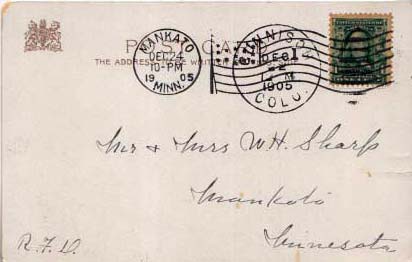 POST CARD
THE ADDRESS TO BE WRITTEN
MANKATO
DEC 24
10-PM
1905
MINN.
GUNNISON
DEC
22
1905
COLO.
Mr & Mrs W.H. Sharp
Mankoto
Minnesota
R.F.D.